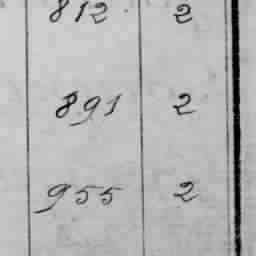 812 2
891 2
955 2